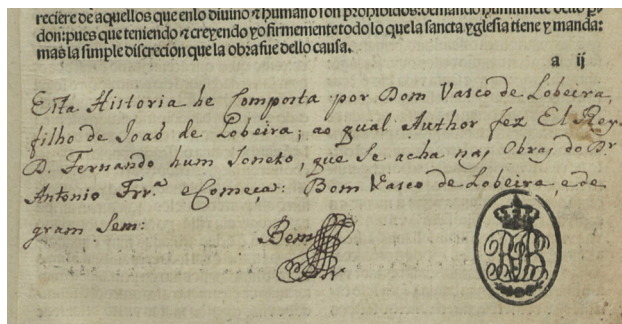 reciere de aquellos que enlo diuino & humano son prohibidos: demando humilmẽte dello ꝑ-
don: pues que teniendo & creyendo yo firmemente todo lo que la sancta yglesia tiene y manda:
mas la simple discrecion que la obra fue dello causa.
a ij
Esta Historia he composta por Dom Vasco de Lobeira,
filho de Joaõ de Lobeira; ao qual Author fez El Rey
D. Fernando hum soneto, que se acha nas Obras do Dr
Antonio Frr.ª e Começa: Bom Vasco de Lobeira, e de
gram sem:
Bom